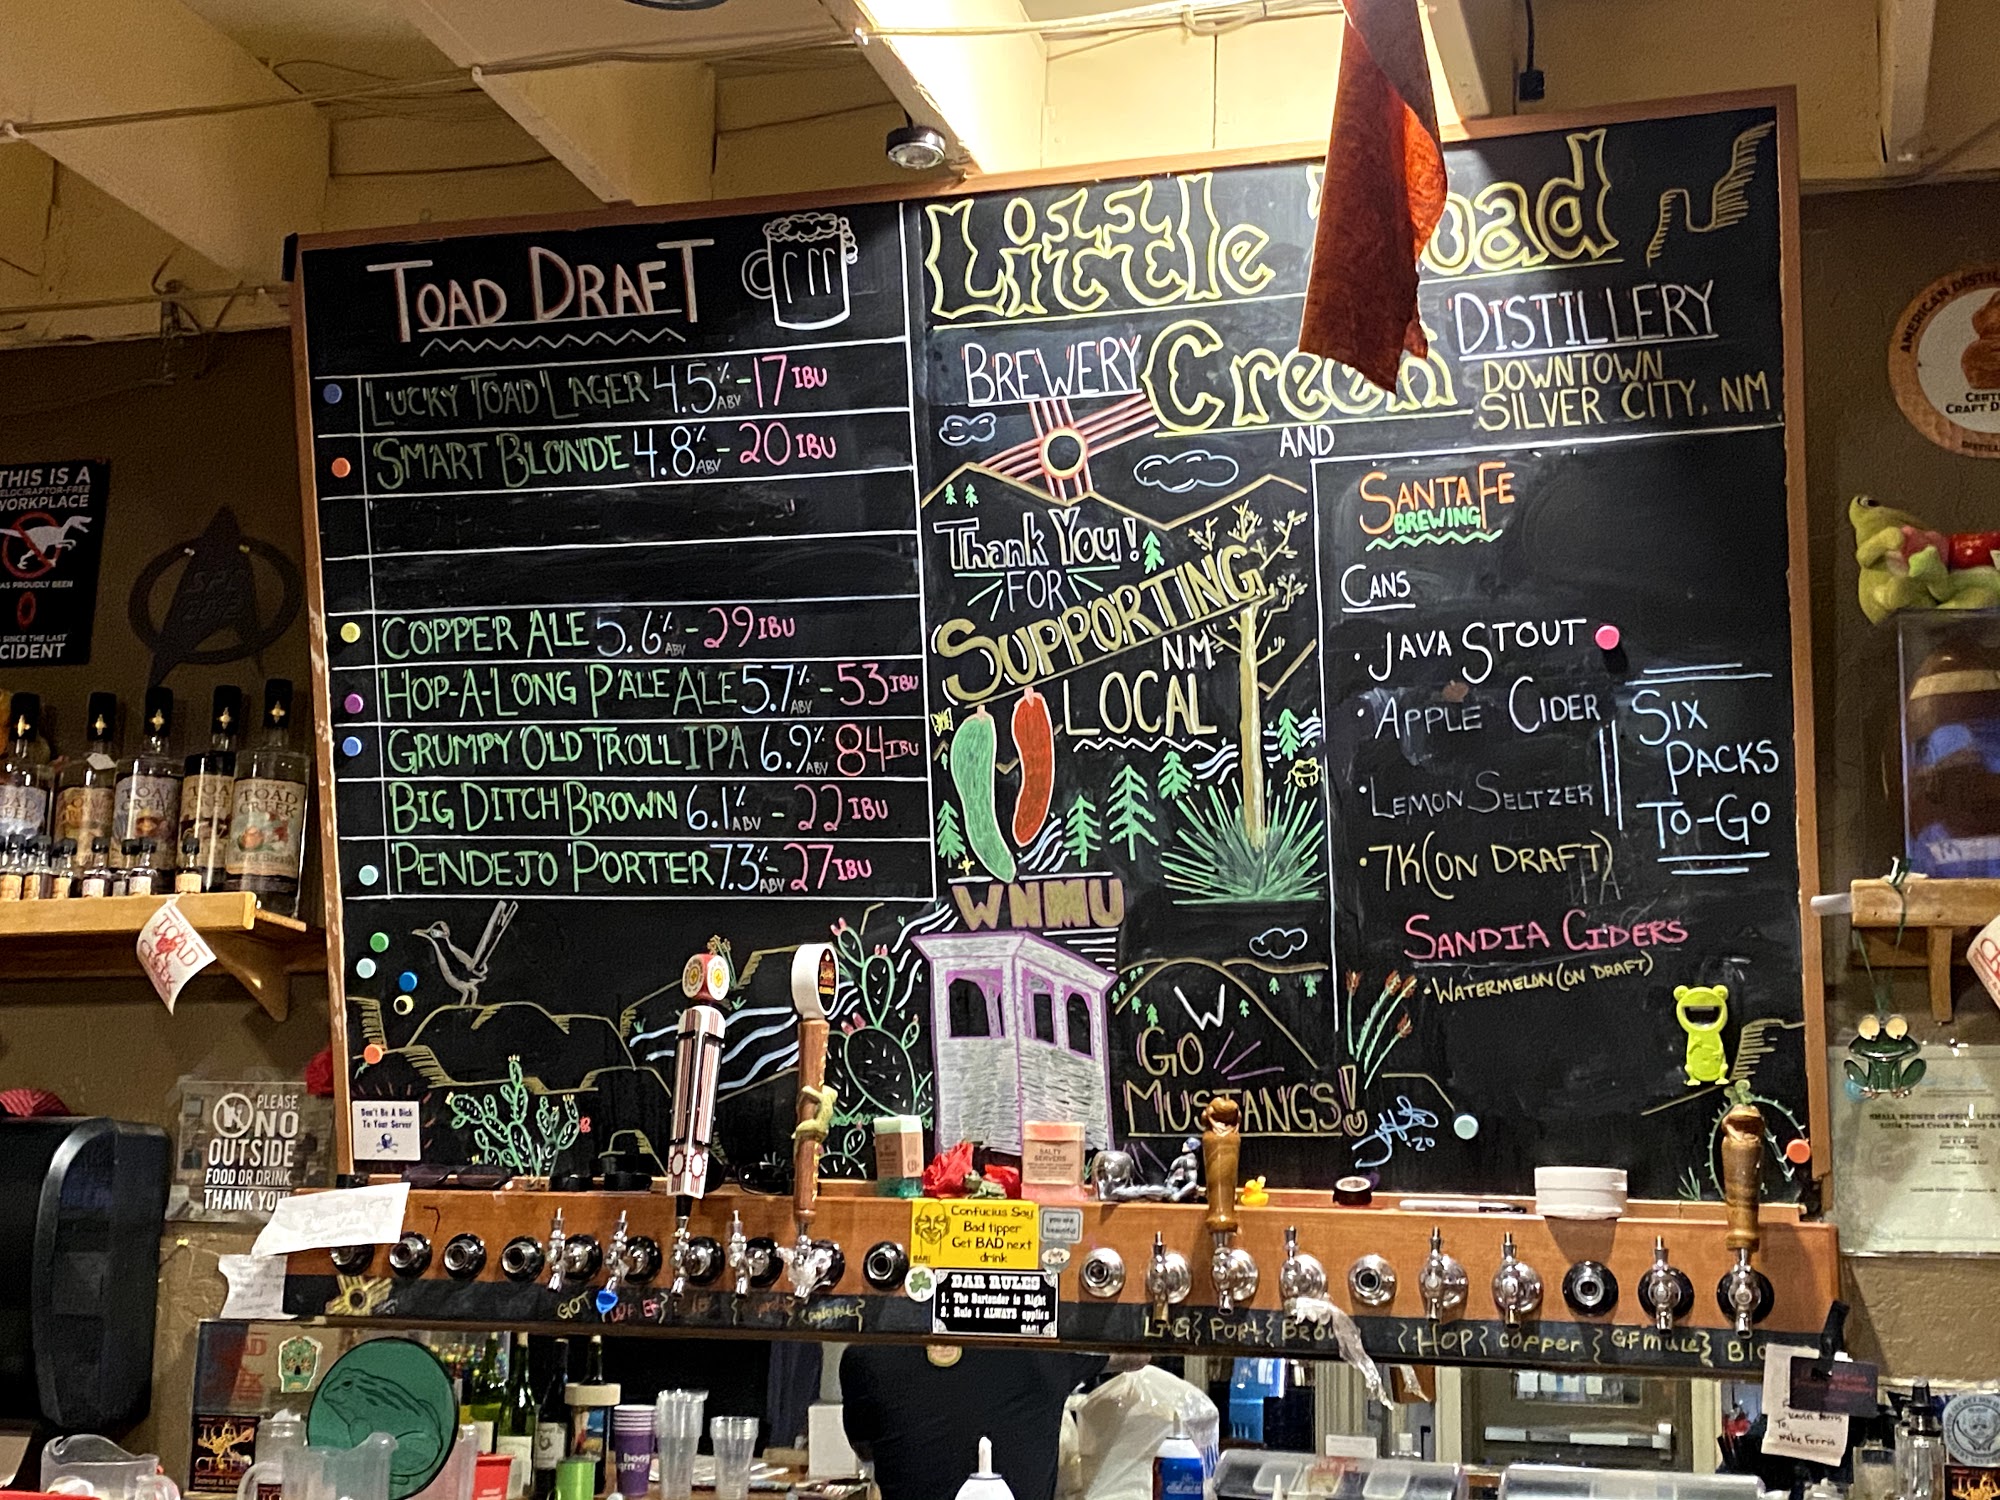 TOAD DRAFT
LUCKY TOAD LAGER 4.5% ABV - 17 IBU
SMART BLONDE 4.8% ABV - 20 IBU
COPPER ALE 5.6% ABV - 29 IBU
HOP-A-LONG PALE ALE 5.7% ABV - 53 IBU
GRUMPY OLD TROLL IPA 6.9% ABV 84 IBU
BIG DITCH BROWN 6.1% ABV - 22 IBU
PENDEJO PORTER 7.3% ABV - 27 IBU
Little oad
BREWERY Creek DISTILLERY
DOWNTOWN
SILVER CITY, NM
AND
Thank You!
FOR
SUPPORTING
N.M.
LOCAL
WNMU
W
GO
MUSTANGS!
20
SANTA FE
BREWING
CANS
· JAVA STOUT
· APPLE CIDER
· LEMON SELTZER
· 7K (ON DRAFT)
IPA
SIX
PACKS
TO-GO
SANDIA CIDERS
· WATERMELON (ON DRAFT)
THIS IS A
WORKPLACE
SINCE THE LAST
TOAD
CREEK
Don't Be A Dick
To Your Server
PLEASE
NO
OUTSIDE
FOOD OR DRINK
THANK YOU
SALTY
SERVERS
Confucius Say
Bad tipper
Get BAD next
drink
BAR!
you are
beautiful
BAR RULES
1. The Bartender is Right
2. Rule 1 ALWAYS applies
BAR!
PORT
HOP } COPPER } GF MULE }
AMERICAN DISTIL
CERTI
CRAFT D